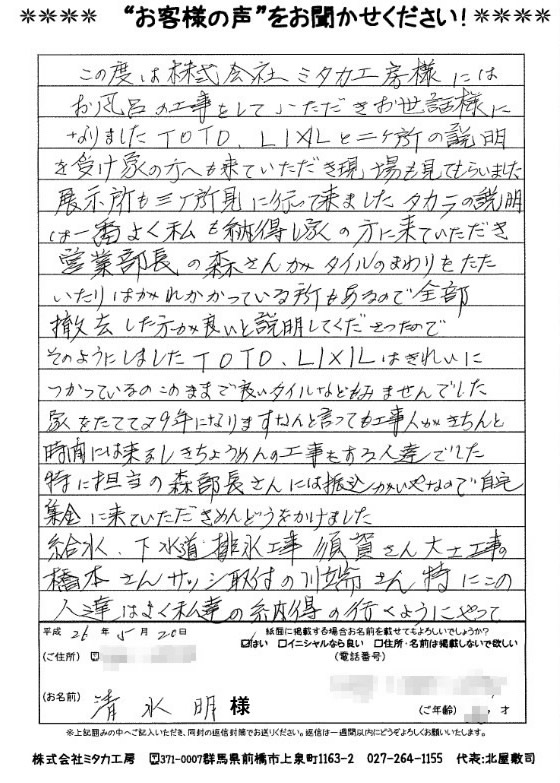 ＊＊＊＊ “お客様の声”をお聞かせください! ＊＊＊＊
この度は株式会社ミタカ工房様には
お風呂の工事をしていただきお世話様に
なりましたTOTO、LIXILと二ヶ所の説明
を受け家の方へも来ていただき現場も見てもらいました
展示所も三ヶ所見に行って来ましたタカラの説明
は一番よく私も納得し家の方に来ていただき
営業部長の森さんがタイルのまわりをたた
いたりはがれかかっている所もあるので全部
撤去した方が良いと説明してくださったので
そのようにしましたTOTO、LIXILはきれいに
つかっているのこのままで良いタイルなど
ませんでした
家をたてて29年になりますなんと言っても工事人がきちんと
時間には来るしきちょうめんの工事もする人達でした
特に担当の森部長さんには振込がいやなので自宅
集金に来ていただきめんどうをかけました
給水、下水道、排水工事 須賀さん大工工事の
橋本さんサッシ取付の川端さん特にこの
人達はよく私達の納得の行くようにやって
平成 26年 5月 20日
紙面に掲載する場合お名前を載せてもよろしいでしょうか?
☑はい □イニシャルなら良い □住所・名前は掲載しないで欲しい
(ご住所) 〒
(電話番号)
(お名前) 清水 明 様
(ご年齢) 才
※上記囲みの中へご記入いただき、同封の返信封筒でお送りください。返信は一週間以内にどうぞよろしくお願いいたします。
株式会社ミタカ工房 〒371-0007群馬県前橋市上泉町1163-2 027-264-1155 代表:北屋敷司